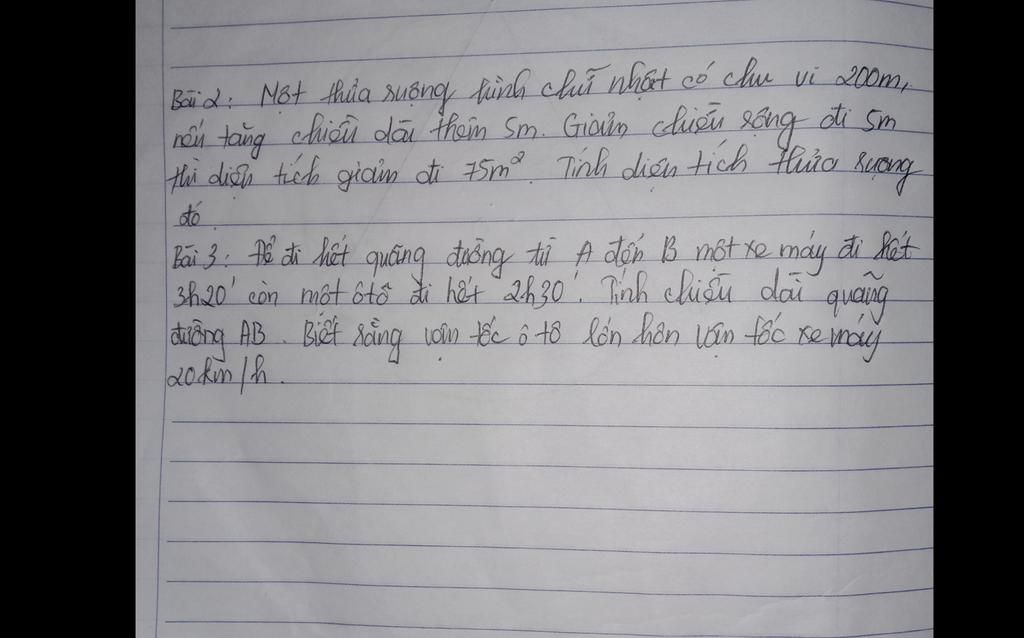 Bài 2: Một thửa ruộng hình chữ nhật có chu vi 200m,
nếu tăng chiều dài thêm 5m. Giảm chiều rộng đi 5m
thì diện tích giảm đi 75m². Tính diện tích thửa ruộng
đó.
Bài 3: Để đi hết quãng đường từ A đến B một xe máy đi hết
3h20' còn một ôtô đi hết 2h30'. Tính chiều dài quãng
đường AB. Biết rằng vận tốc ô tô lớn hơn vận tốc xe máy
20km/h.